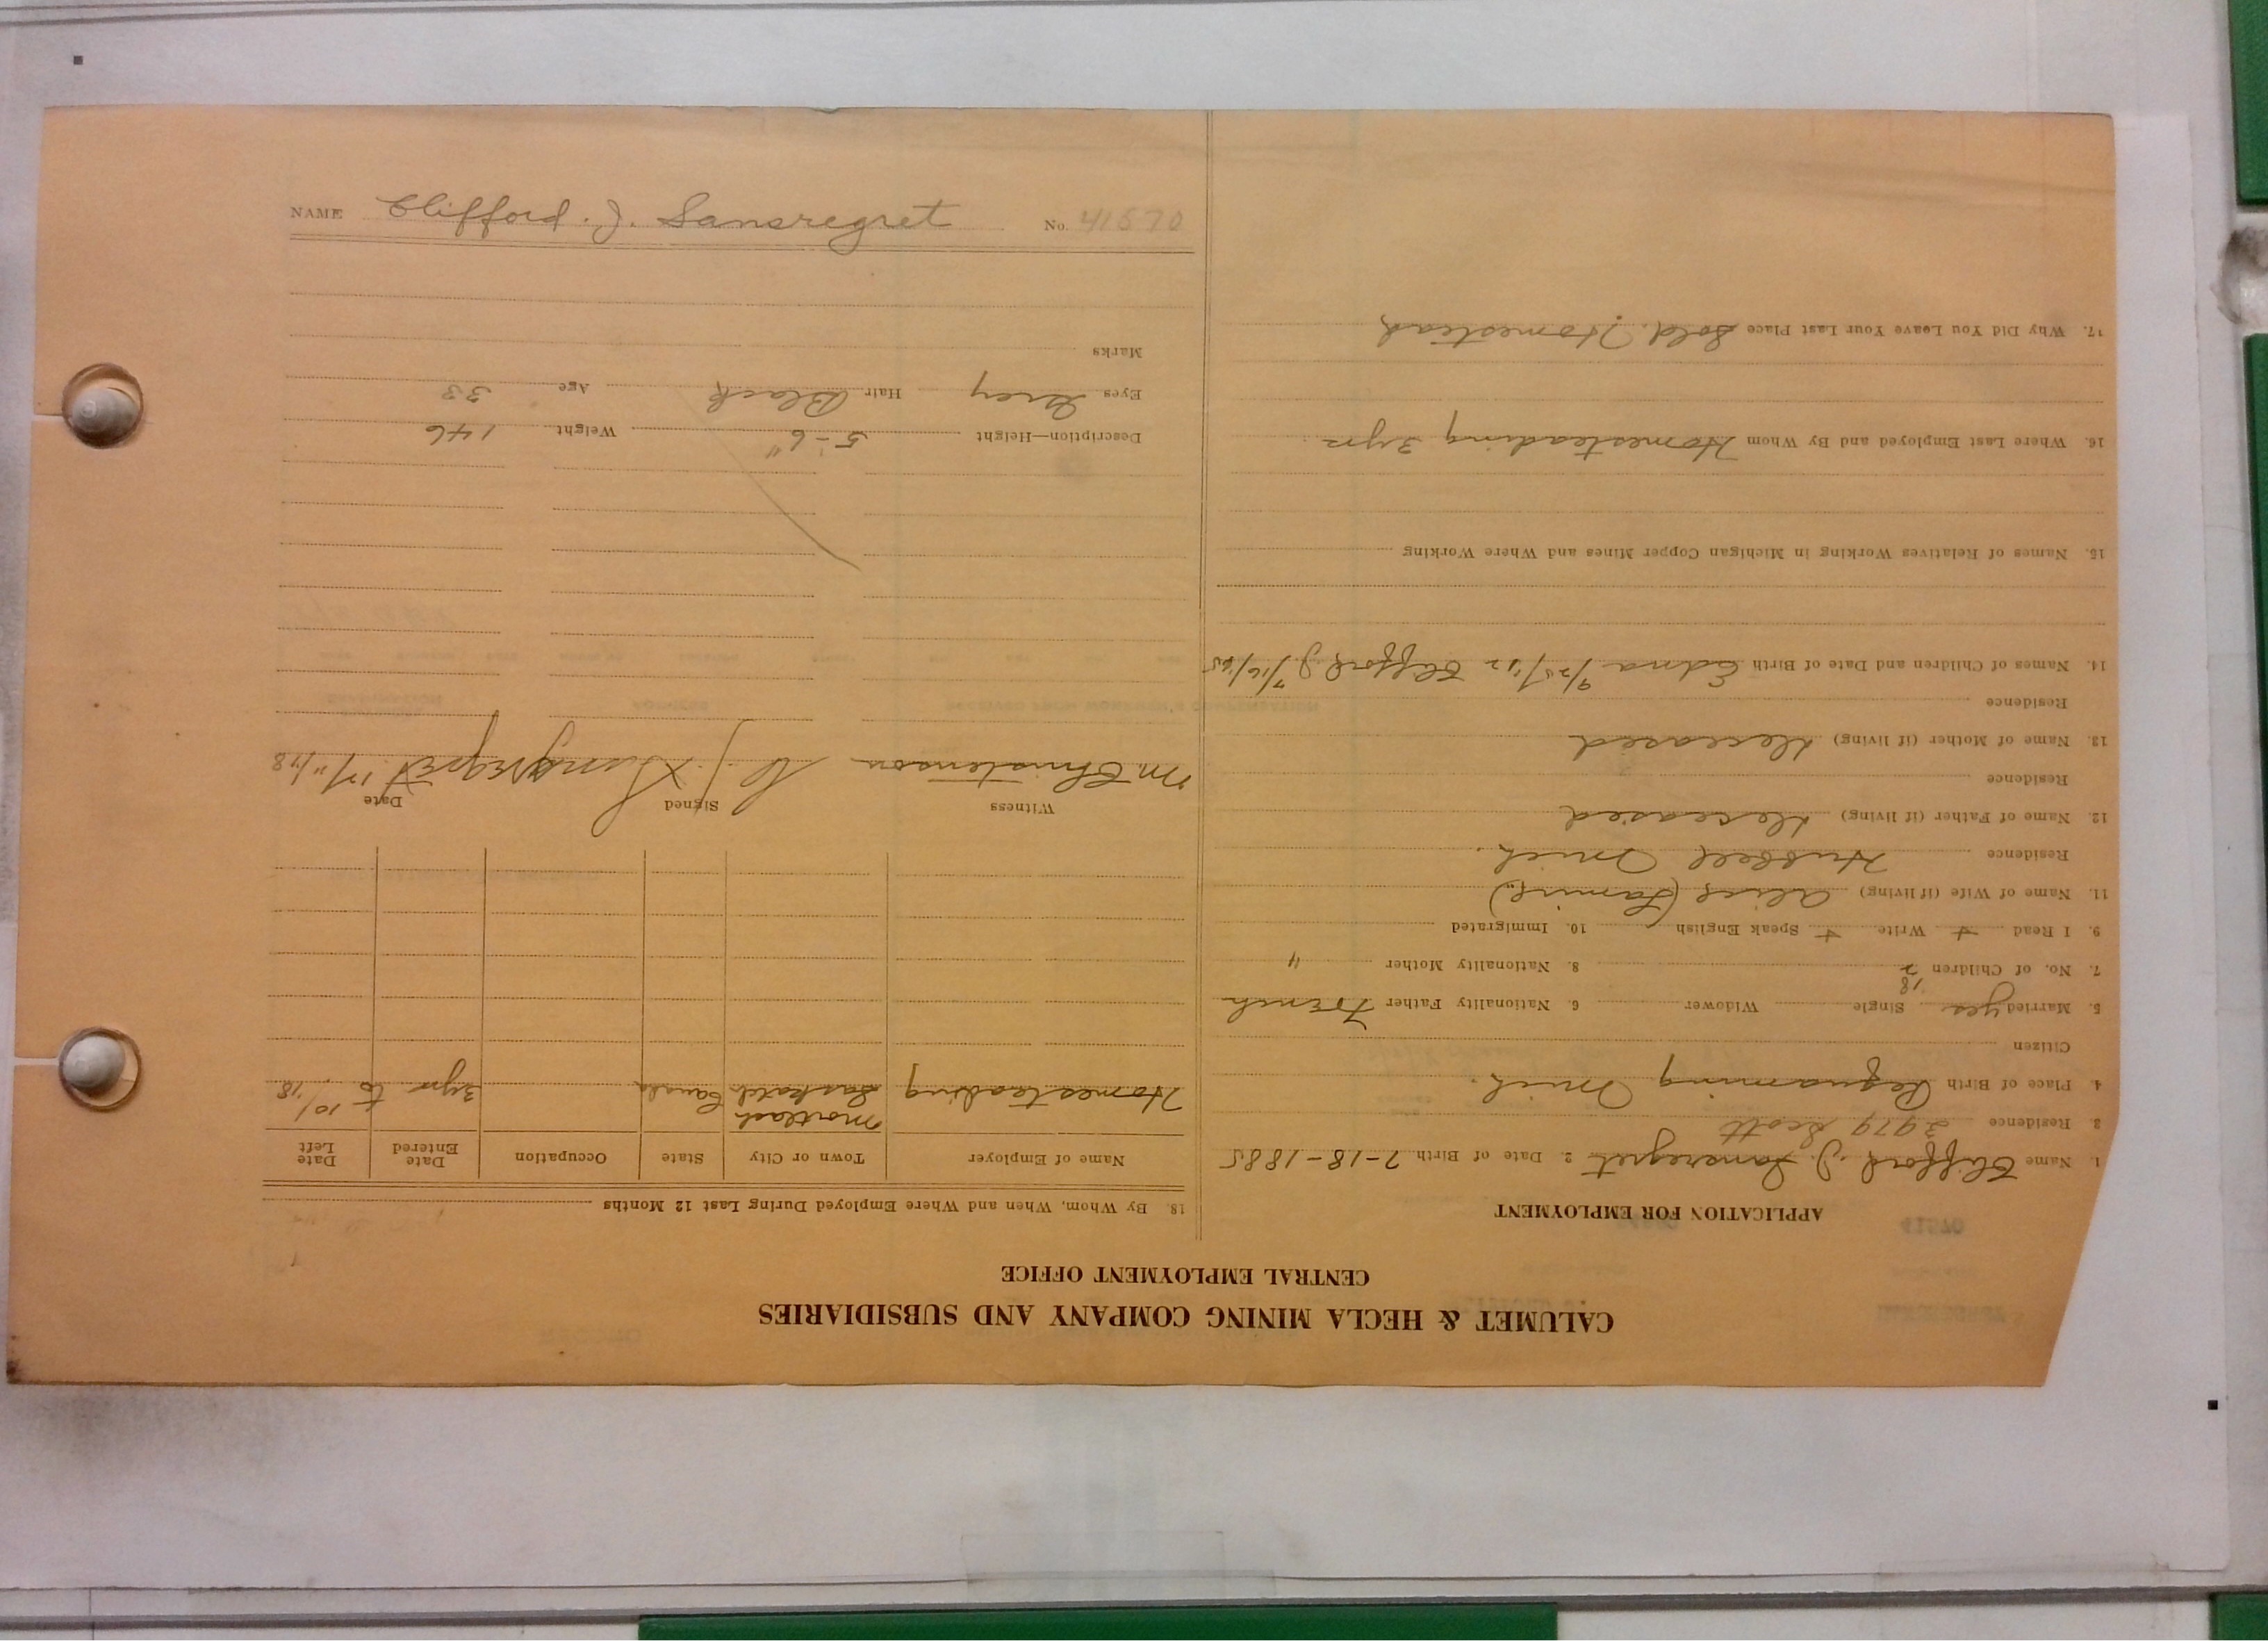 CALUMET & HECLA MINING COMPANY AND SUBSIDIARIES
CENTRAL EMPLOYMENT OFFICE
APPLICATION FOR EMPLOYMENT
1. Name Clifford. J. Sansregret 2. Date of Birth 7-18-1885
3. Residence 2979 Scott
4. Place of Birth Mich.
Citizen
5. Married yes Single Widower 6. Nationality Father French
18
7. No. of Children 2 8. Nationality Mother "
9. I Read + Write + Speak English 10. Immigrated
11. Name of Wife (if living) Alice
Residence Hubbell Mich.
12. Name of Father (if living) Deceased
Residence
13. Name of Mother (if living) Deceased
Residence
14. Names of Children and Date of Birth Edna Clifford J
15. Names of Relatives Working in Michigan Copper Mines and Where Working
16. Where Last Employed and By Whom Homesteading 3 yrs
17. Why Did You Leave Your Last Place Sold. Homestead
18. By Whom, When and Where Employed During Last 12 Months
Name of Employer Town or City State Occupation Date Entered Date Left
Homesteading Mortlach Saskatch Canada 3 yrs to 10/18
Witness Signed Date
M. Christenson C. J. Sansregret 11/18
Description—Height 5-6" Weight 146
Eyes Grey Hair Black Age 33
Marks
NAME Clifford. J. Sansregret No. 41570